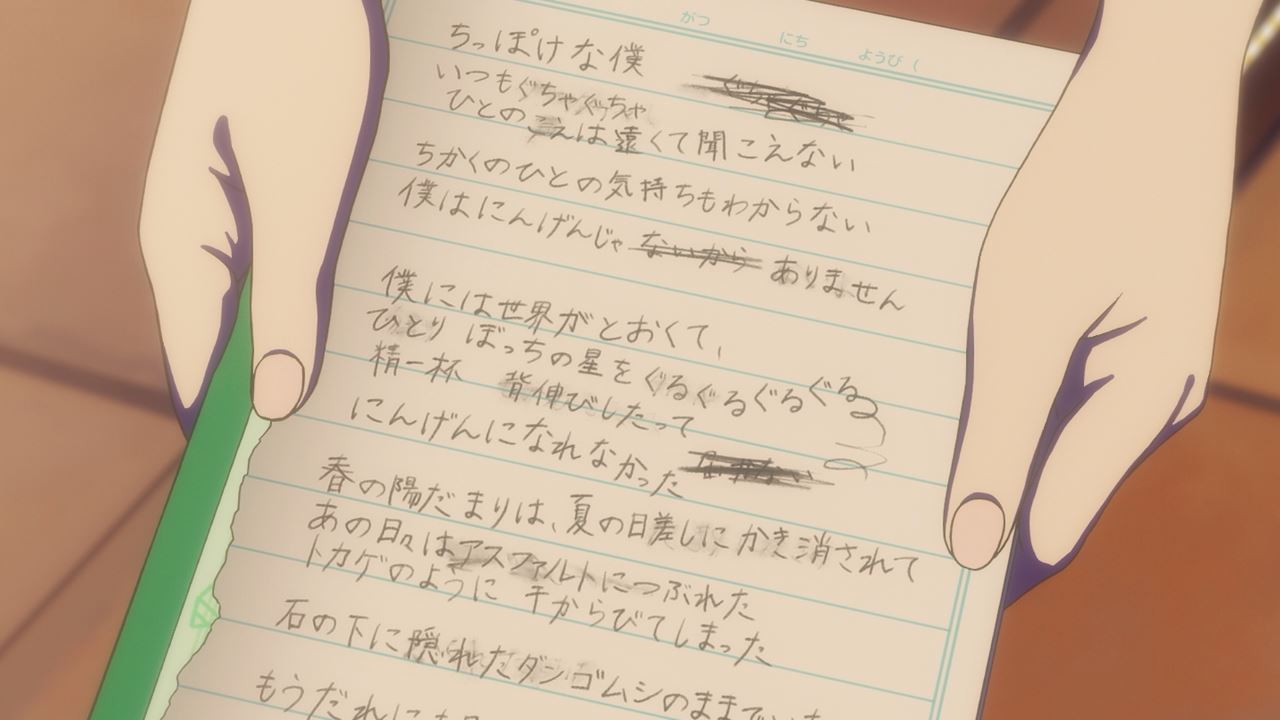 がつ にち ようび（
ちっぽけな僕
いつもぐちゃぐっちゃ
ひとのこえは遠くて聞こえない
ちかくのひとの気持ちもわからない
僕はにんげんじゃ ないから ありません
僕には世界がとおくて、
ひとりぼっちの星をぐるぐるぐるぐる
精一杯 背伸びしたって
にんげんになれなかった
春の陽だまりは、夏の日差しにかき消されて
あの日々はアスファルトにつぶれた
トカゲのように 干からびてしまった
石の下に隠れたダンゴムシのままで
もうだれにも